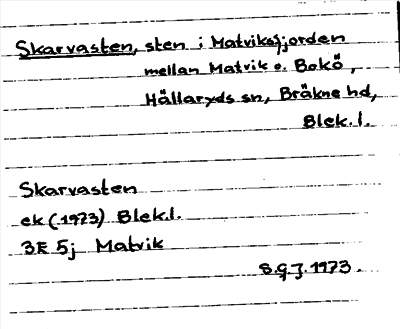 Skarvasten, sten i Matviksfjorden
mellan Matvik o. Bokö,
Hällaryds sn, Bräkne hd,
Blek.l.
Skarvasten
ek (1973) Blek.l.
3E 5j Matvik
S.G.J. 1973.